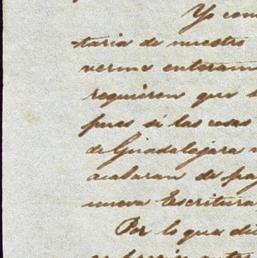 Yo con
taria de nuestro
verme enteram
requieren que
pues si las cosas
de Guadalajara
acabaran de pa
nueva Escritura
Por lo que di